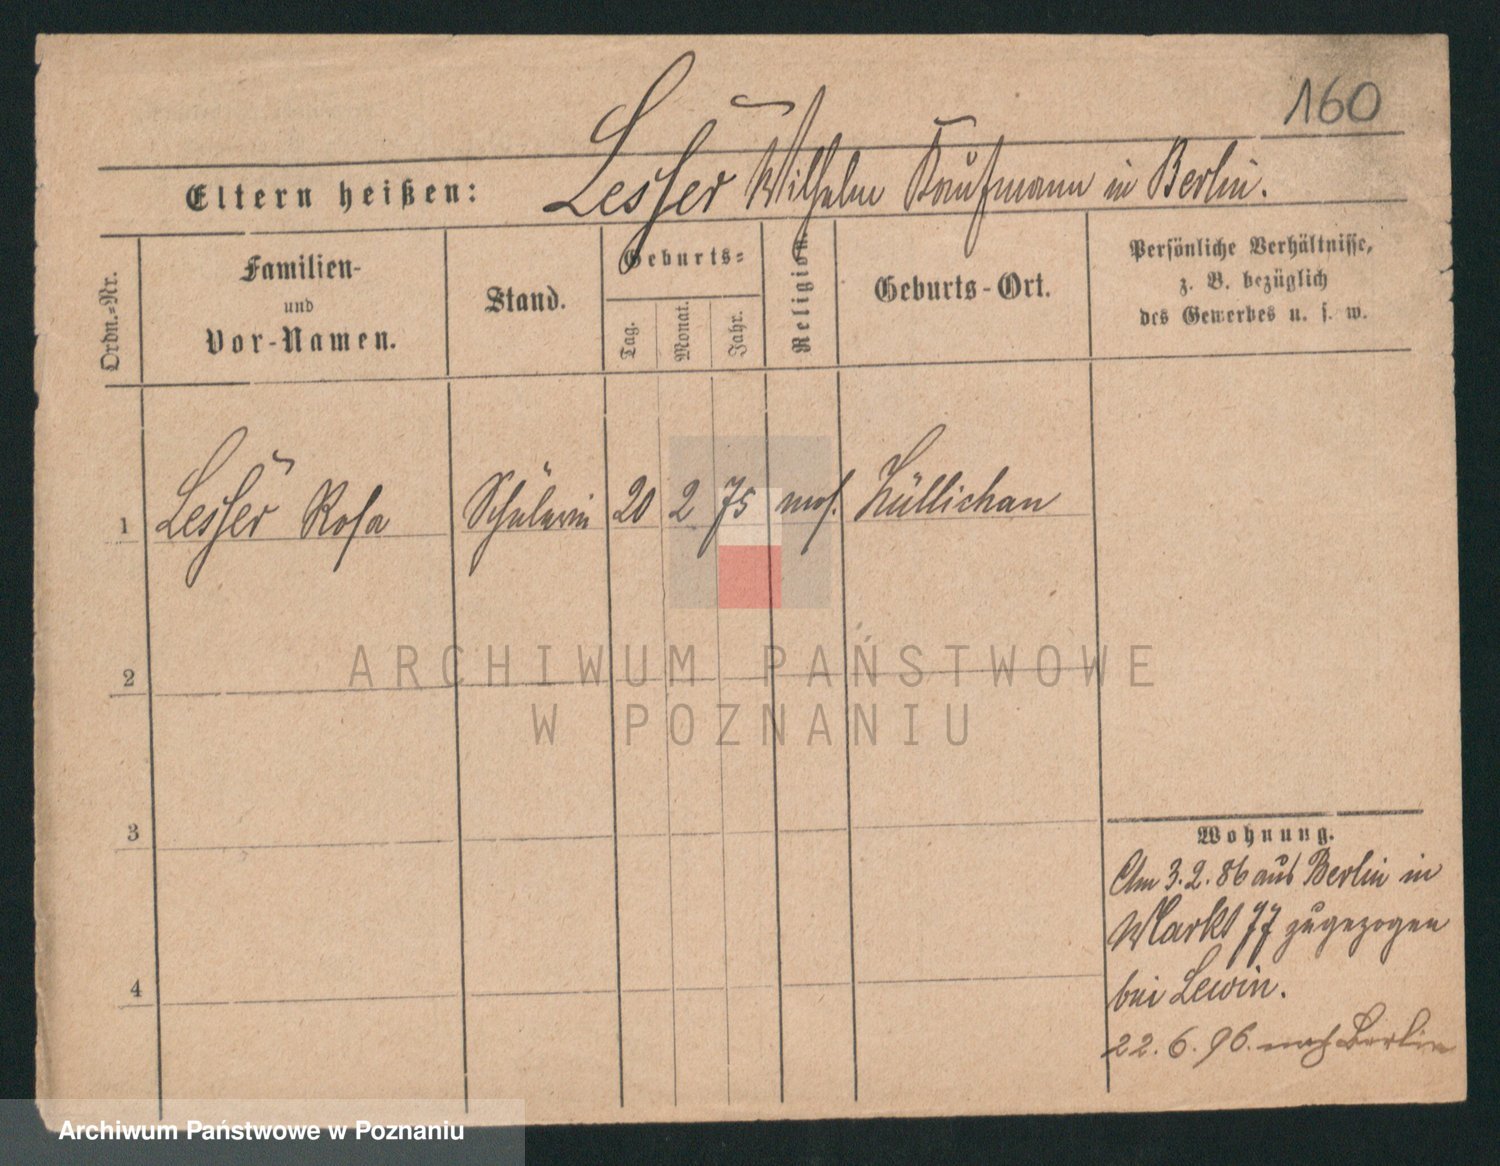 160
Eltern heißen: Lesser Wilhelm Kaufmann in Berlin.
Ordn.-Nr.
Familien-
und
Vor-Namen.
Stand.
Geburts-
Tag.
Monat.
Jahr.
Religion.
Geburts-Ort.
Persönliche Verhältnisse,
z. B. bezüglich
des Gewerbes u. s. w.
1 Lesser Rosa Schülerin 20 2 75 mos. Züllichau
2
ARCHIWUM PAŃSTWOWE
W POZNANIU
3
4
Wohnung.
Am 3.2.86 aus Berlin in
Markt 77 zugezogen
bei Lewin.
22.6.96. nach Berlin
Archiwum Państwowe w Poznaniu